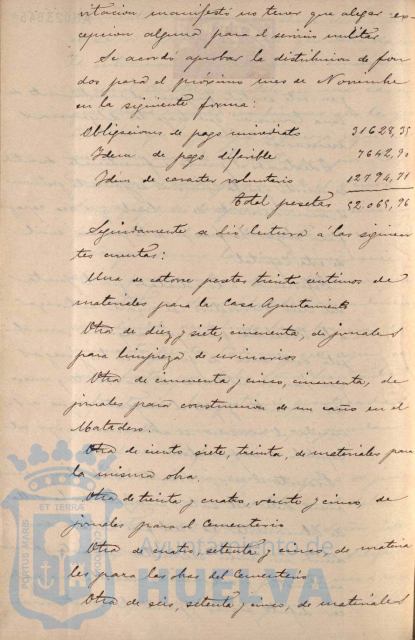 citación manifestó no tener que alegar ex-
cepcion alguna para el servicio militar
Se acordó aprobar la distribucion de fon
dos para el próximo mes de Noviembre
en la siguiente forma:
Obligaciones de pago inmediato 31628,35
Idem de pago diferible 7642,90
Idem de caracter voluntario 12794,71
Total pesetas 52.065,96
Seguidamente se dió lectura á las siguien
tes cuentas:
Una de catorce pesetas treinta céntimos de
materiales para la Casa Ayuntamiento
Otra de diez y siete, cincuenta, de jornales
para limpieza de urinarios
Otra de cincuenta y cinco, cincuenta, de
jornales para construccion de un caño en el
Matadero.
Otra de ciento siete, treinta, de materiales para
la misma obra.
Otra de treinta y cuatro, veinte y cinco, de
jornales para el Cementerio
Otra de cuatro, setenta y cinco, de materia
les para las del Cementerio
Otra de seis, setenta y cinco, de materiales
ET TERRÆ
PORTUS MARIS
CUSTODIA
Ayuntamiento de
HUELVA